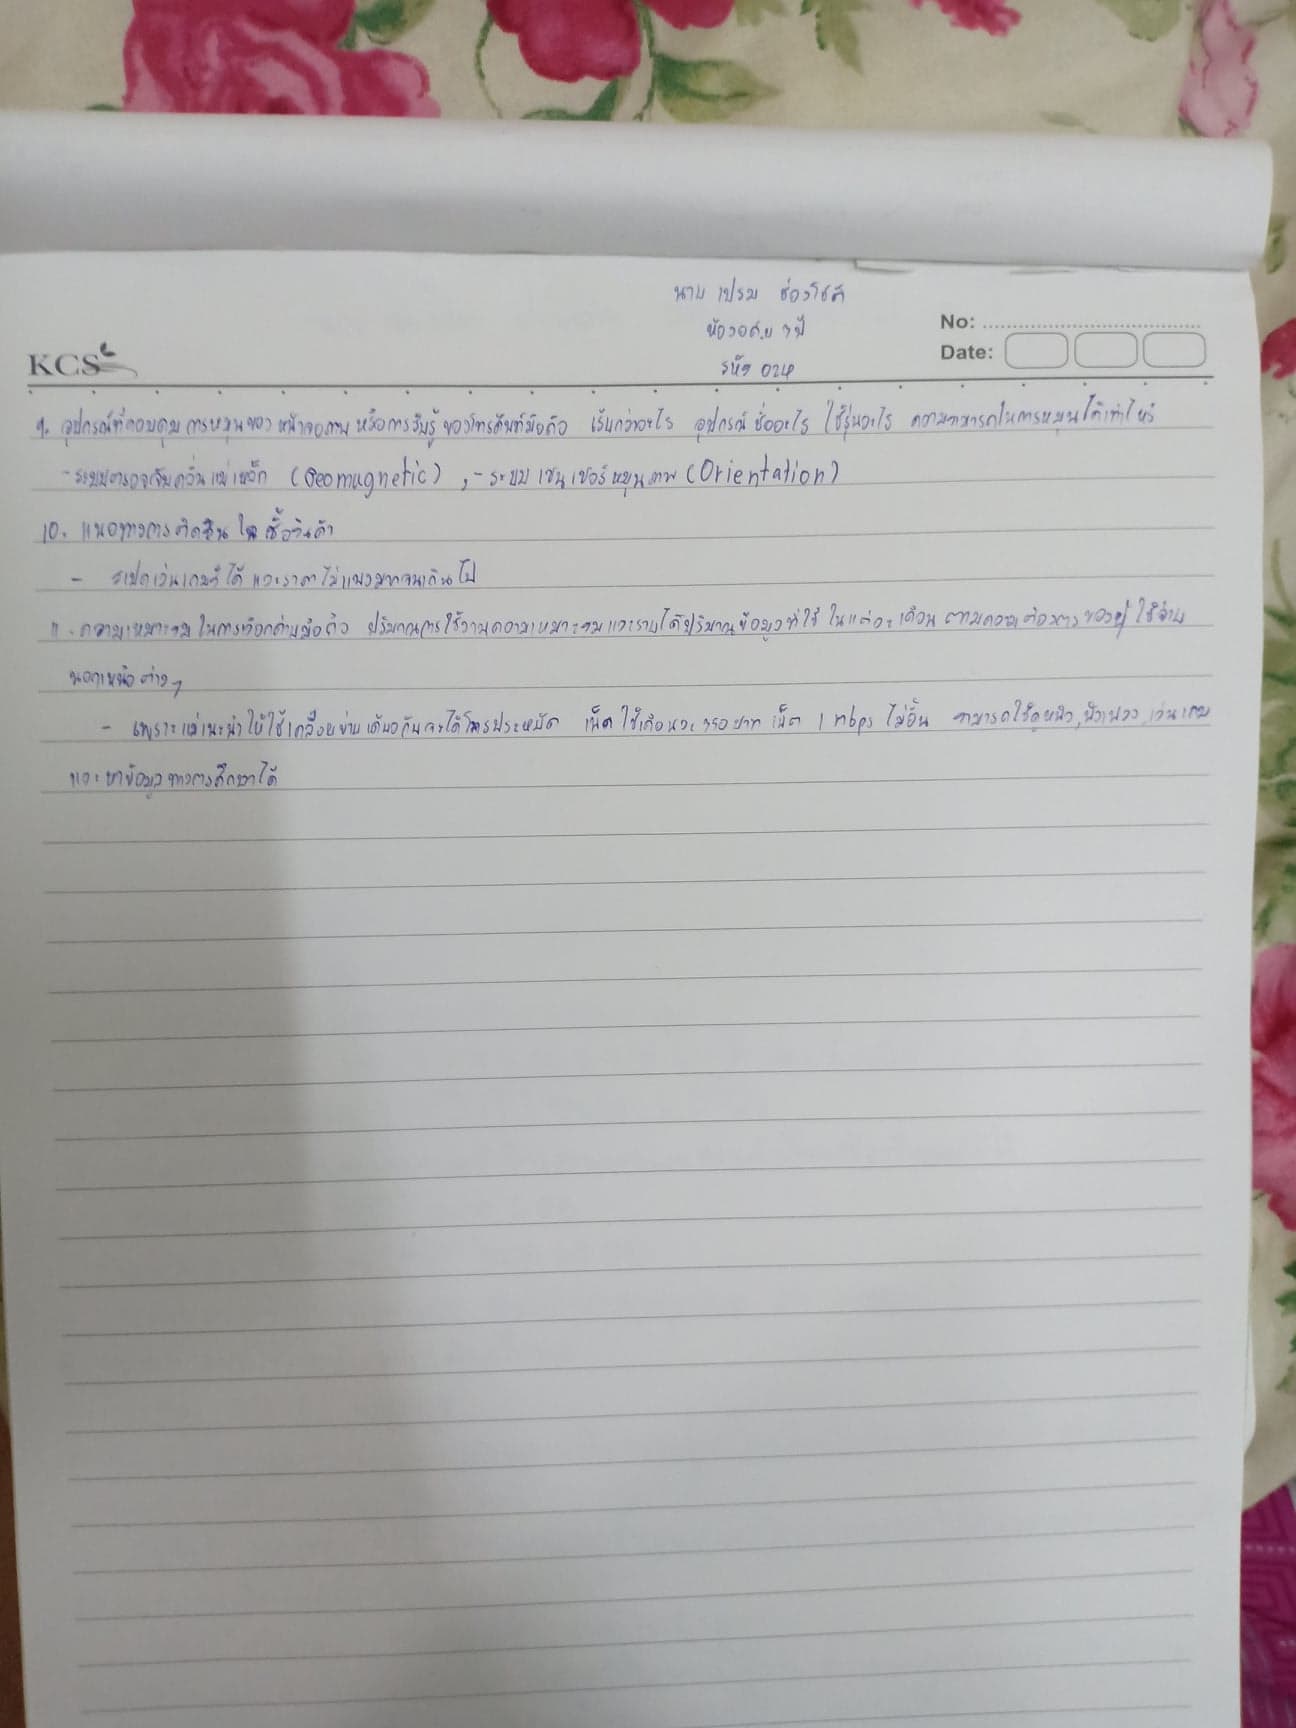 นาย เปรม ช่วงโชติ
ห้อง อศ.ย 3 ปี
รหัส 024
No:
Date:
KCS
9. อุปกรณ์ที่ควบคุม การหมุนของ หน้าจอภาพ หรือการรับรู้ ของโทรศัพท์มือถือ เรียกว่าอะไร อุปกรณ์ ชื่ออะไร ใช้รุ่นอะไร ความสามารถในการหมุนได้เท่าไหร่
- ระบบตรวจจับคลื่นแม่เหล็ก (Geomagnetic) , - ระบบ เซนเซอร์ หมุนภาพ (Orientation)
10. แนวทางการตัดสินใจ ซื้อสินค้า
- สเปคเล่นเกมส์ได้ และราคาไม่แพงมากจนเกินไป
11. ความเหมาะสม ในการเลือกค่ายมือถือ ปริมาณการใช้งานความเหมาะสม และรายได้ปริมาณข้อมูลที่ใช้ ในแต่ละเดือน ตามความต้องการ ของผู้ ใช้งาน
นอกเหนือ ต่างๆ
- เพราะแม่แนะนำ ให้ใช้เครือข่ายเดียวกันจะได้โทรประหยัด เน็ต ใช้เดือนละ บาท เน็ต 1 mbps ไม่อั้น สามารถใช้ดูหนัง, ฟังเพลง, เล่นเกม
และ หาข้อมูล ทางการศึกษาได้